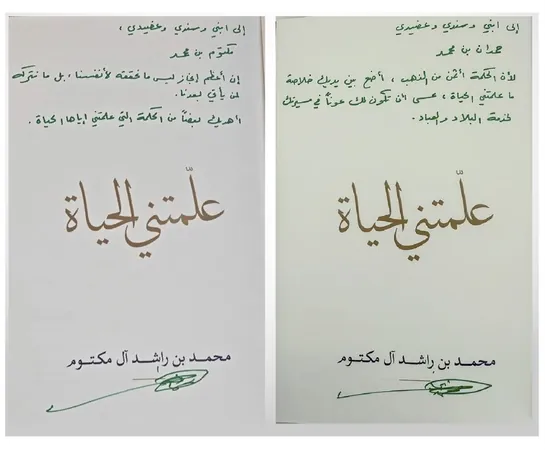 إلى ابني وسندي وعضيدي ،
مكتوم بن محمد
إن أعظم إنجاز ليس ما نحققه لأنفسنا، بل ما نتركه
لمن يأتي بعدنا.
أهديك بعضاً من الحكمة التي علمتني إياها الحياة .
علّمتني الحياة
محمد بن راشد آل مكتوم
إلى ابني وسندي وعضيدي
حمدان بن محمد
لأن الحكمة أثمن من الذهب ، أضع بين يديك خلاصة
ما علمتني الحياة ، عسى أن تكون لك عوناً في مسيرتك
لخدمة البلاد والعباد.
علّمتني الحياة
محمد بن راشد آل مكتوم